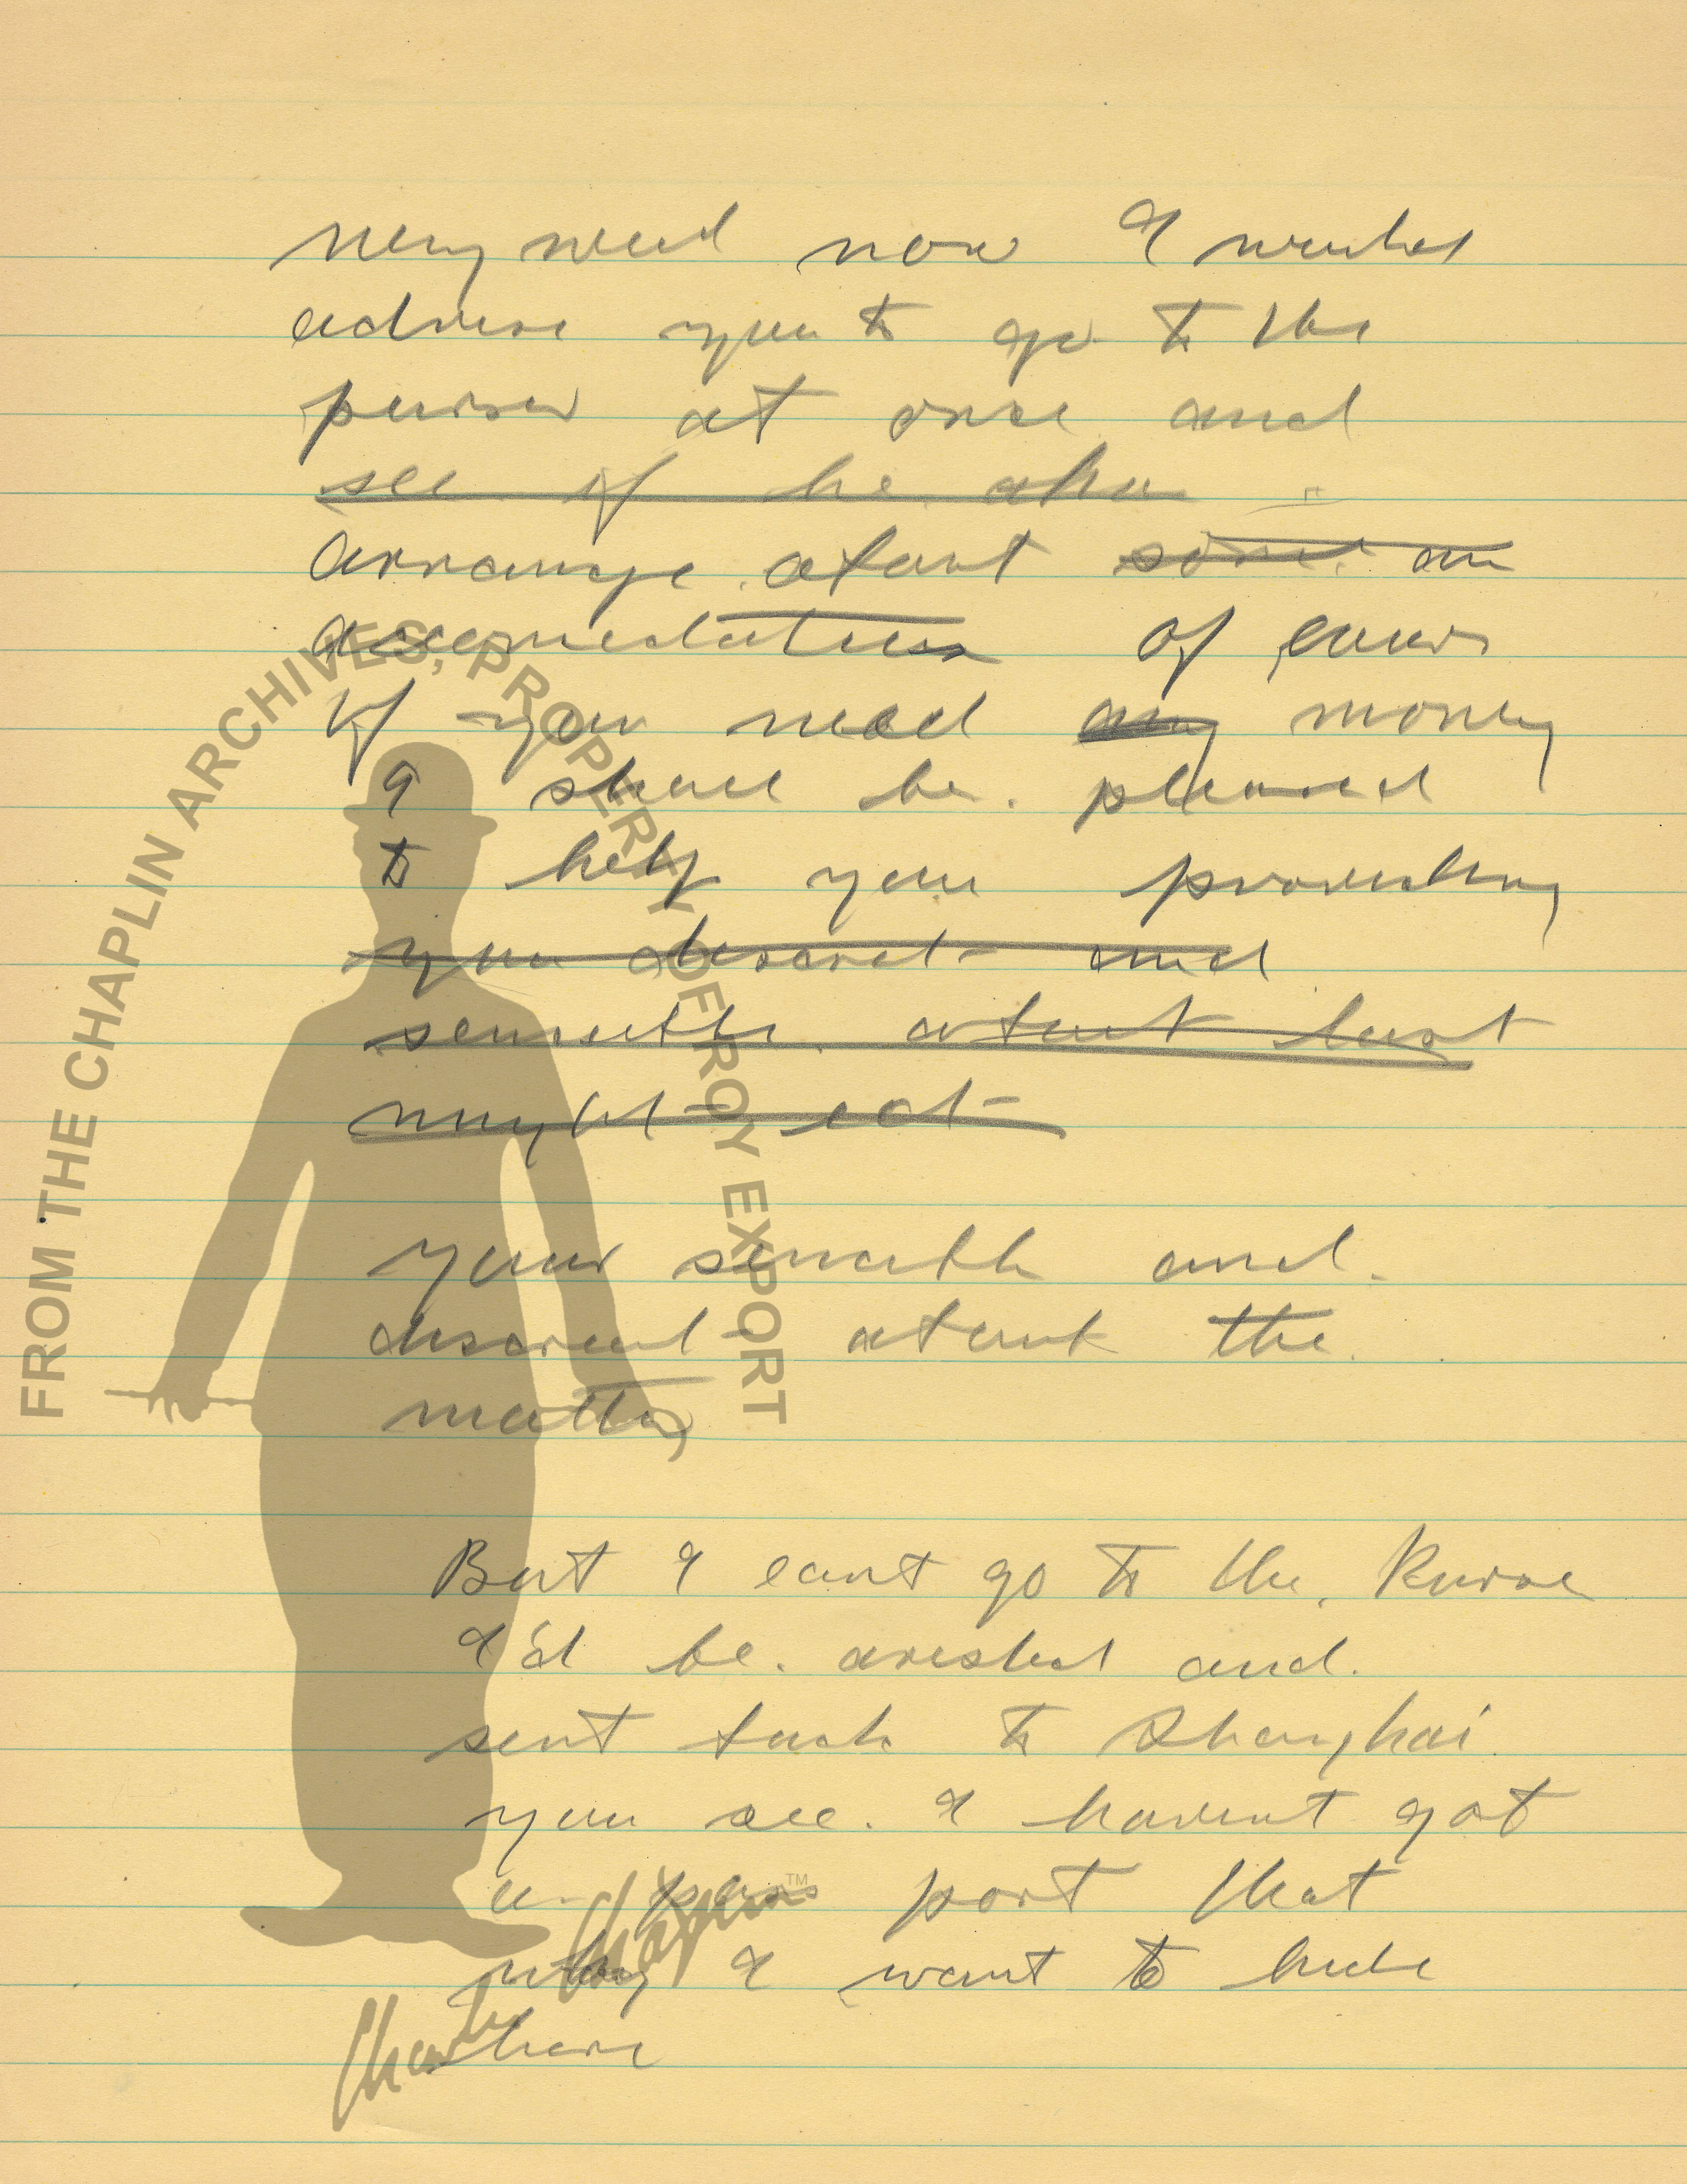 very well now I would
advise you to go to the
purser at once and
see if he
arrange about some an
accomodation of cours
if you need any money
I shall be pleased
to help you providing
you discreet and
sensible about last
might eat
your sensible and
discreet about the
matter
But I cant go to the Purser
I'd be arested and
sent back to Shanghai
you see. I havent got
a pass port that
why I want to hide
here
FROM THE CHAPLIN ARCHIVES, PROPERTY OF ROY EXPORT
Charlie Chaplin™